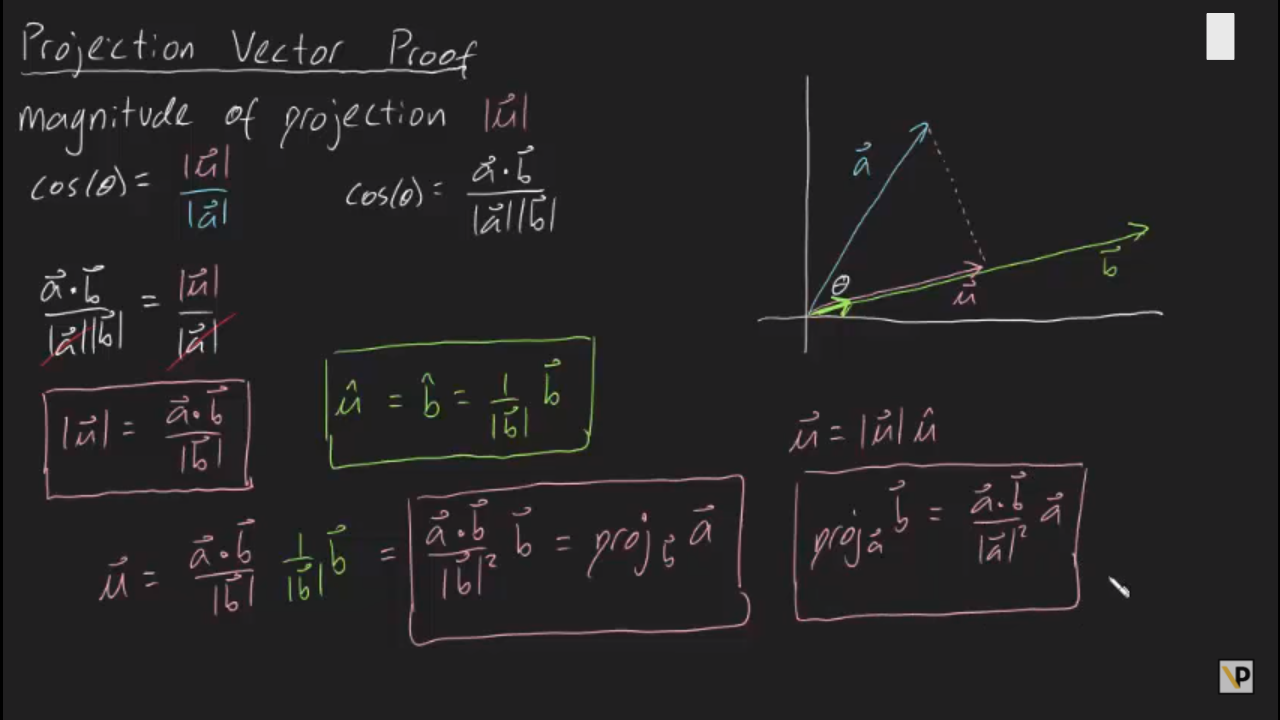 Projection Vector Proof
magnitude of projection |u⃗|
cos(θ) = |u⃗| / |a⃗|
cos(θ) = a⃗·b⃗ / |a⃗||b⃗|
a⃗·b⃗ / |a⃗||b⃗| = |u⃗| / |a⃗|
|u⃗| = a⃗·b⃗ / |b⃗|
û = b̂ = 1/|b⃗| b⃗
u⃗ = a⃗·b⃗ / |b⃗| 1/|b⃗| b⃗ = a⃗·b⃗ / |b⃗|² b⃗ = proj_b⃗ a⃗
a⃗
θ
u⃗
b⃗
u⃗ = |u⃗| û
proj_a⃗ b⃗ = a⃗·b⃗ / |a⃗|² a⃗
VP